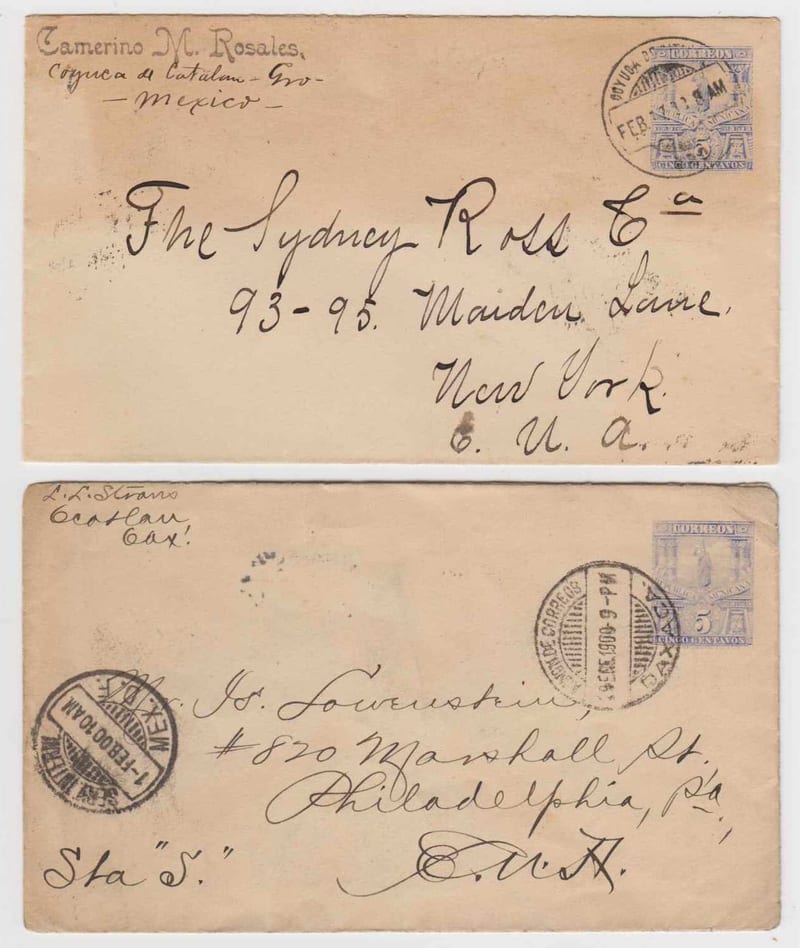 Camerino M. Rosales,
Coyuca de Catalan - Gro -
- Mexico -
COYUCA DE
FEB 8 AM
CORREOS
MEXICANA
5
CINCO CENTAVOS
The Sydney Ross Cª
93-95. Maiden Lane,
New York.
E. U. A.
L. L. Straus
Ocotlan,
Oax!
CORREOS
MEXICANA
5
CINCO CENTAVOS
ADMON DE CORREOS
ENE.1900 9-PM
OAXACA.
MEX. D.F.
1-FEB.00 10AM
Mr. Is. Lowenstein,
#820 Marshall St.
Philadelphia, Pa,
E. U. A.
Sta "S."